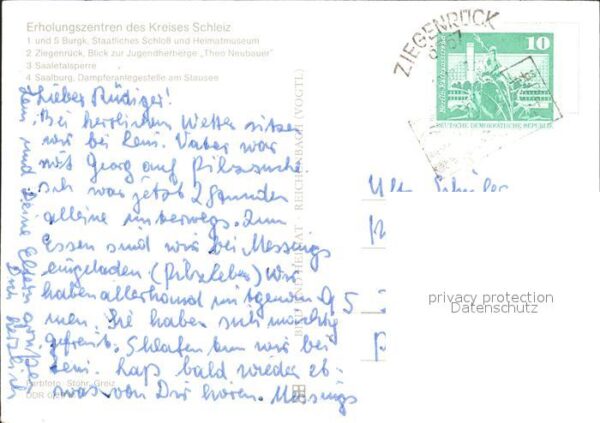 Erholungszentren des Kreises Schleiz
1 und 5 Burgk, Staatliches Schloß und Heimatmuseum
2 Ziegenrück, Blick zur Jugendherberge „Theo Neubauer"
3 Saaletalsperre
4 Saalburg, Dampferanlegestelle am Stausee
Lieber Rüdiger!
Bei herrlichem Wetter sitzen
wir bei Leni. Vater war
mit Georg auf Pilzsuche
ich war jetzt 2 Stunden
alleine unterwegs. Zum
Essen sind wir bei Messings
eingeladen (Pilzleber) Wir
haben allerhand mitgenom
men. Sie haben sich mächtig
gefreut. Schlafen tun wir bei
Leni. Laß bald wieder et-
was von Dir hören. Messings
Leni und Deine Eltern grüßen
Dich herzlich
BILD UND HEIMAT REICHENBACH (VOGTL)
Farbfoto: Stöhr, Greiz
ZIEGENRÜCK
10
DEUTSCHE DEMOKRATISCHE REPUBLIK
95
privacy protection
Datenschutz